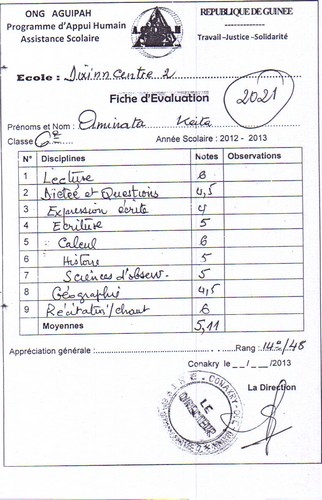 ONG AGUIPAH
Programme d'Appui Humain
Assistance Scolaire
REPUBLIQUE DE GUINEE
Travail-Justice-Solidarité
Ecole : Dixinn Centre 2
Fiche d'Evaluation
2021
Prénoms et Nom : Aminata Keita
Classe 6e Année Scolaire : 2012 - 2013
N° Disciplines Notes Observations
1 Lecture 6
2 Dictée et Questions 4,5
3 Expression écrite 4
4 Ecriture 5
5 Calcul 6
6 Histoire 5
7 Sciences d'observ. 5
8 Géographie 4,5
9 Récitation/chant 6
Moyennes 5,11
Appréciation générale : Rang : 14e/48
Conakry le __/__/2013
La Direction
CONAKRY
LE
DIRECTEUR